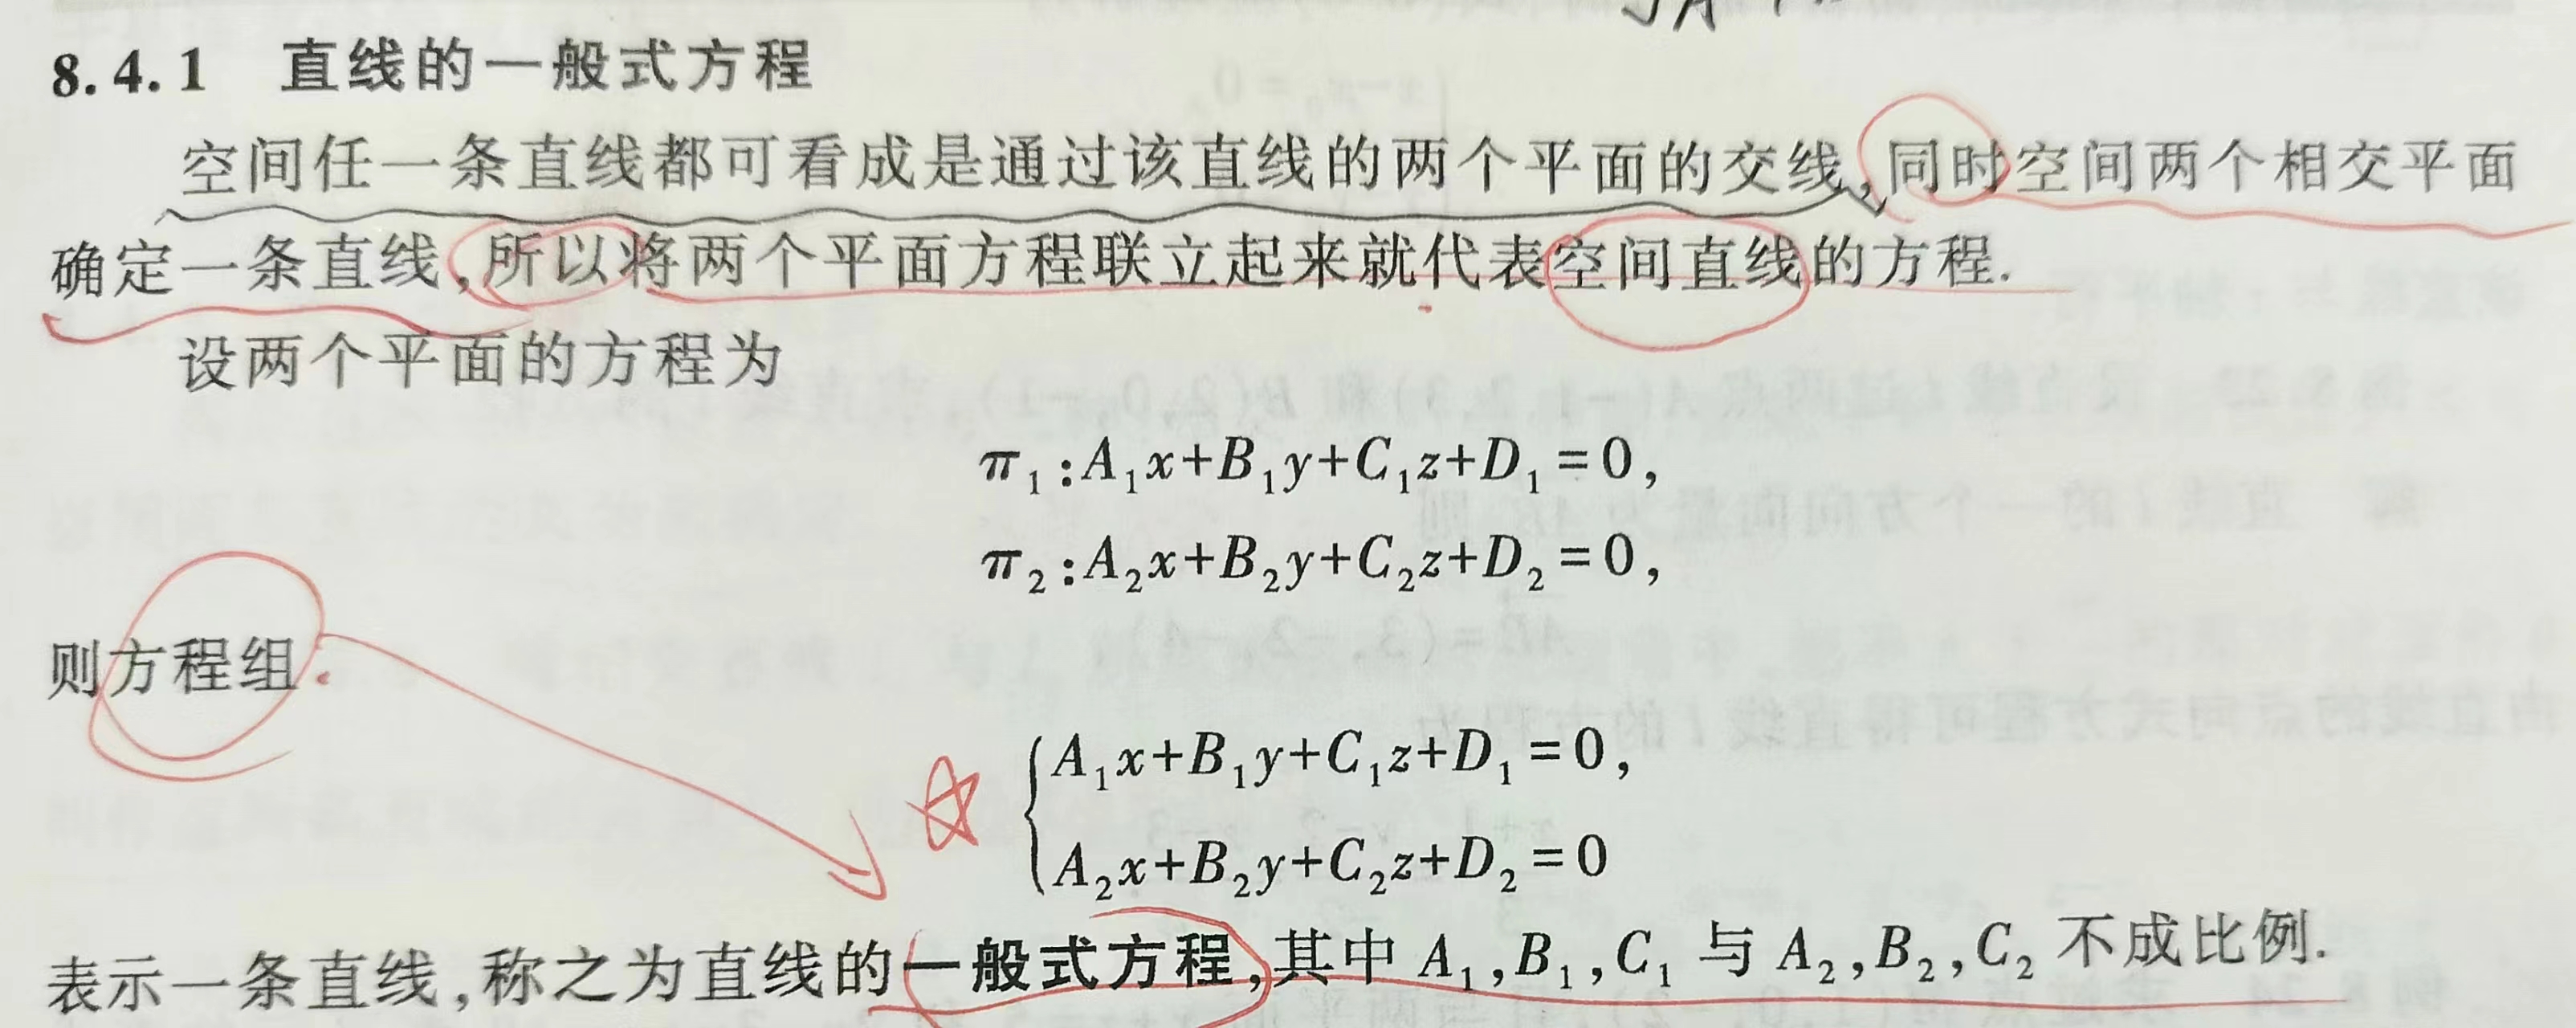 8.4.1 直线的一般式方程
空间任一条直线都可看成是通过该直线的两个平面的交线,同时空间两个相交平面
确定一条直线,所以将两个平面方程联立起来就代表空间直线的方程.
设两个平面的方程为
π₁:A₁x+B₁y+C₁z+D₁=0,
π₂:A₂x+B₂y+C₂z+D₂=0,
则方程组
A₁x+B₁y+C₁z+D₁=0,
A₂x+B₂y+C₂z+D₂=0
表示一条直线,称之为直线的一般式方程,其中 A₁,B₁,C₁ 与 A₂,B₂,C₂ 不成比例.